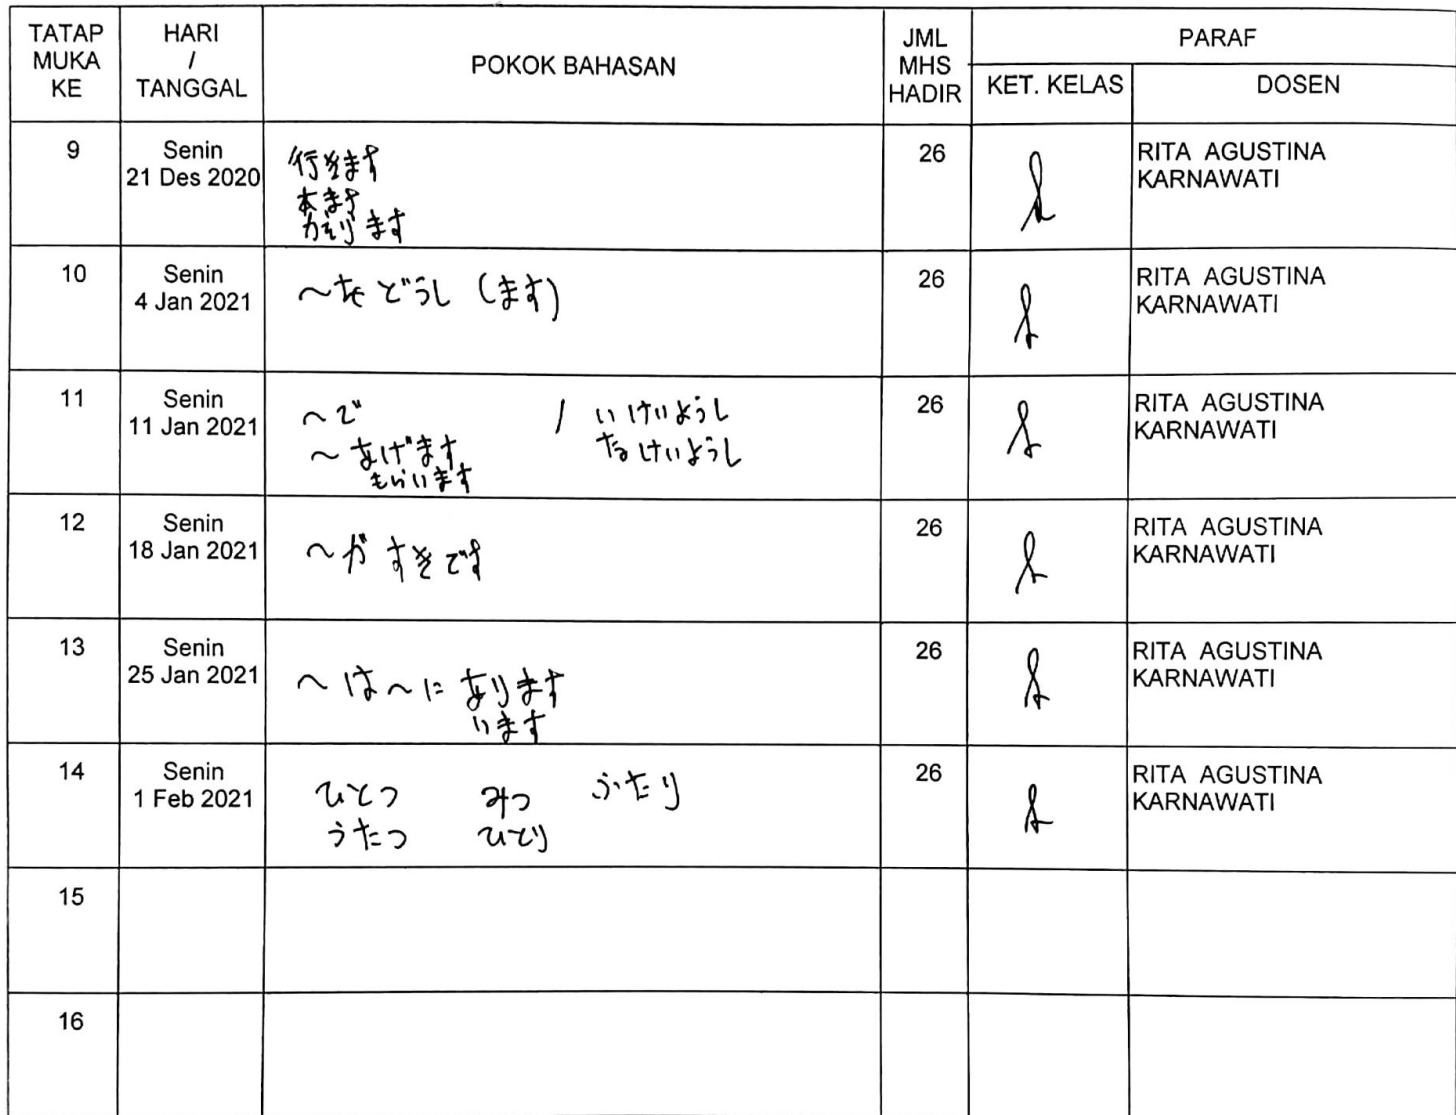 TATAP MUKA KE
HARI / TANGGAL
POKOK BAHASAN
JML MHS HADIR
PARAF
KET. KELAS
DOSEN
9
Senin
21 Des 2020
行きます
来ます
かえります
26
RITA AGUSTINA
KARNAWATI
10
Senin
4 Jan 2021
～をどうし (ます)
26
RITA AGUSTINA
KARNAWATI
11
Senin
11 Jan 2021
～で / いけいようし
～あげます なけいようし
もらいます
26
RITA AGUSTINA
KARNAWATI
12
Senin
18 Jan 2021
～がすきです
26
RITA AGUSTINA
KARNAWATI
13
Senin
25 Jan 2021
～は～にあります
います
26
RITA AGUSTINA
KARNAWATI
14
Senin
1 Feb 2021
ひとつ みつ ふたり
うたつ ひとり
26
RITA AGUSTINA
KARNAWATI
15
16